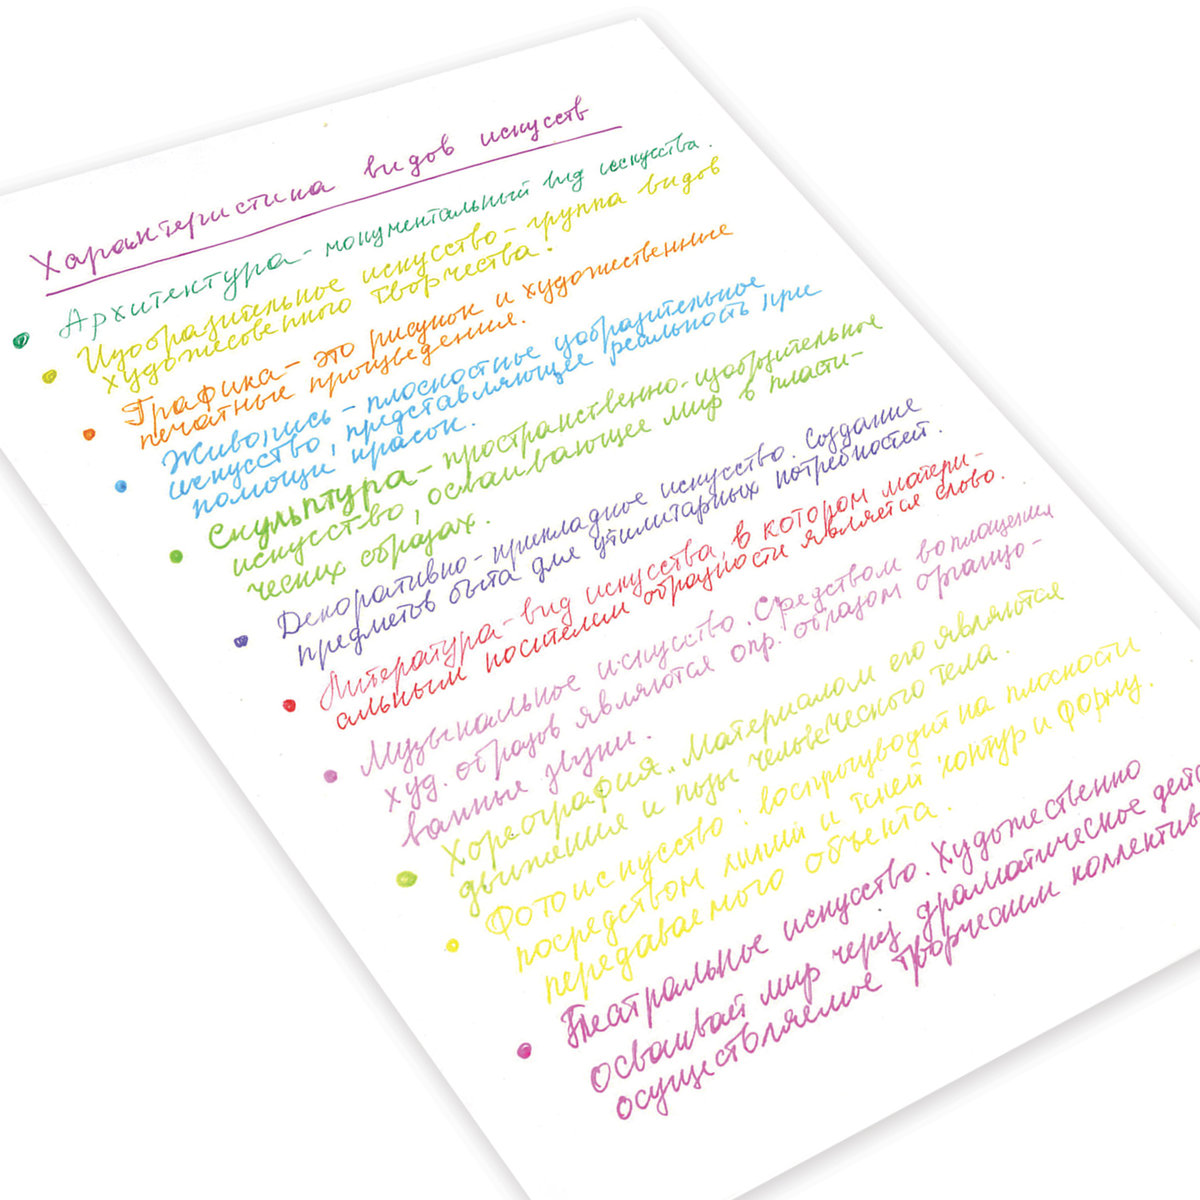 Характеристика видов искусств
Архитектура - монументальный вид искусства.
Изобразительное искусство - группа видов
художественного творчества.
Графика - это рисунок и художественные
печатные произведения.
Живопись - плоскостное изобразительное
искусство, представляющее реальность при
помощи красок.
Скульптура - пространственно-изобразительное
искусство, осваивающее мир в пласти-
ческих образах.
Декоративно-прикладное искусство. Создание
предметов быта для утилитарных потребностей.
Литература - вид искусства, в котором матери-
альным носителем образности является слово.
Музыкальное искусство. Средством воплощения
худ. образов являются опр. образом организо-
ванные звуки.
Хореография. Материалом его являются
движения и позы человеческого тела.
Фотоискусство: воспроизводит на плоскости
посредством линий и теней контур и форму
передаваемого объекта.
Театральное искусство. Художественно
осваивает мир через драматическое дейст
осуществляемое творческим коллектив